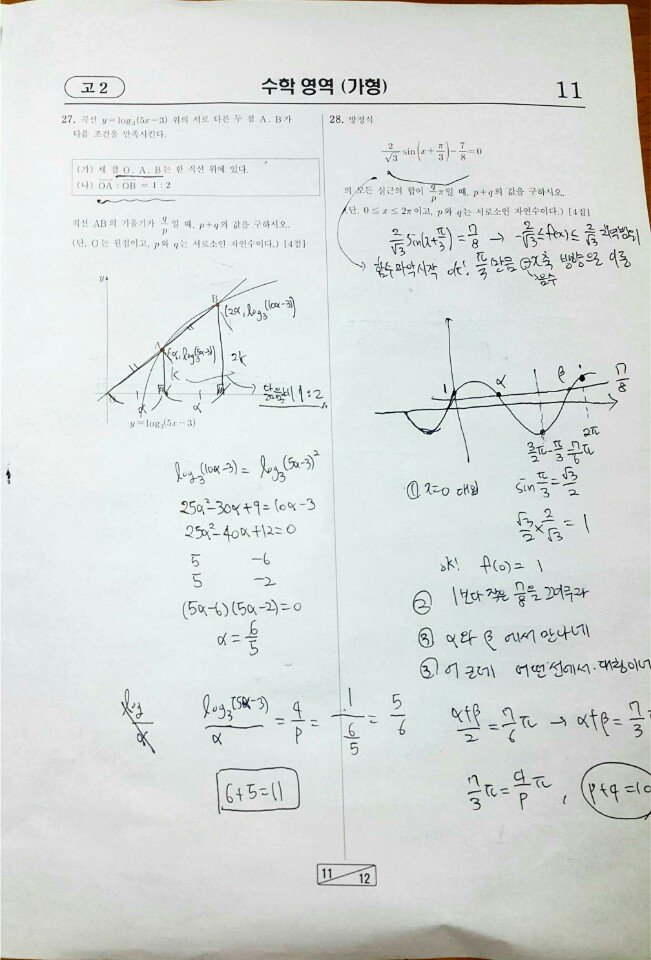 고 2
수학 영역 (가형)
11
27. 곡선 y=log₃(5x-3) 위의 서로 다른 두 점 A, B가
다음 조건을 만족시킨다.
(가) 세 점 O, A, B는 한 직선 위에 있다.
(나) OA : OB = 1 : 2
직선 AB의 기울기가 q/p 일 때, p+q의 값을 구하시오.
(단, O는 원점이고, p와 q는 서로소인 자연수이다.) [4점]
y
B
(2α, log₃(10α-3))
A
(α, log₃(5α-3))
K
2K
α
α
닮음비 1:2
y=log₃(5x-3)
log₃(10α-3) = log₃(5α-3)²
25α²-30α+9=10α-3
25α²-40α+12=0
5 -6
5 -2
(5α-6)(5α-2)=0
α = 6/5
log/α
log₃(5α-3)/α = q/p = 1/(6/5) = 5/6
6+5=11
28. 방정식
2/√3 sin(x+π/3)-7/8=0
의 모든 실근의 합이 q/p π일 때, p+q의 값을 구하시오.
(단, 0≤x≤2π이고, p와 q는 서로소인 자연수이다.) [4점]
2/√3 sin(x+π/3)=7/8 → -2/√3≤f(x)≤2/√3
함수파악시작 ok! π/3 만큼 ⊖x축 방향으로 이동
음수
1
α
β
7/8
2π
3/2π-π/3 7/6π
① x=0 대입 sin π/3=√3/2
√3/2 × 2/√3 = 1
ok! f(0)=1
② 1보다 작은 7/8을 그려주라
③ α와 β에서 만나네
③ 어 근데 어떤 선에서 대칭이네
(α+β)/2=7/6π → α+β=7/3
7/3π=q/pπ, p+q=10
11
12